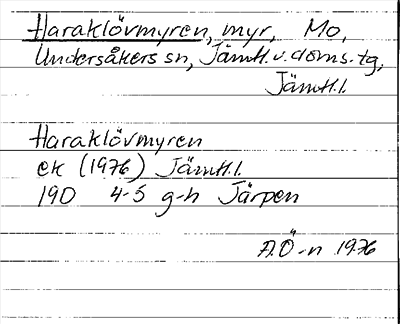 Haraklövmyren, myr, Mo,
Undersåkers sn, Jämtl. v. doms. tg,
Jämtl. l.
Haraklövmyren
ek (1976) Jämtl. l.
190 4-5 g-h Järpen
A.Ö-n 1976